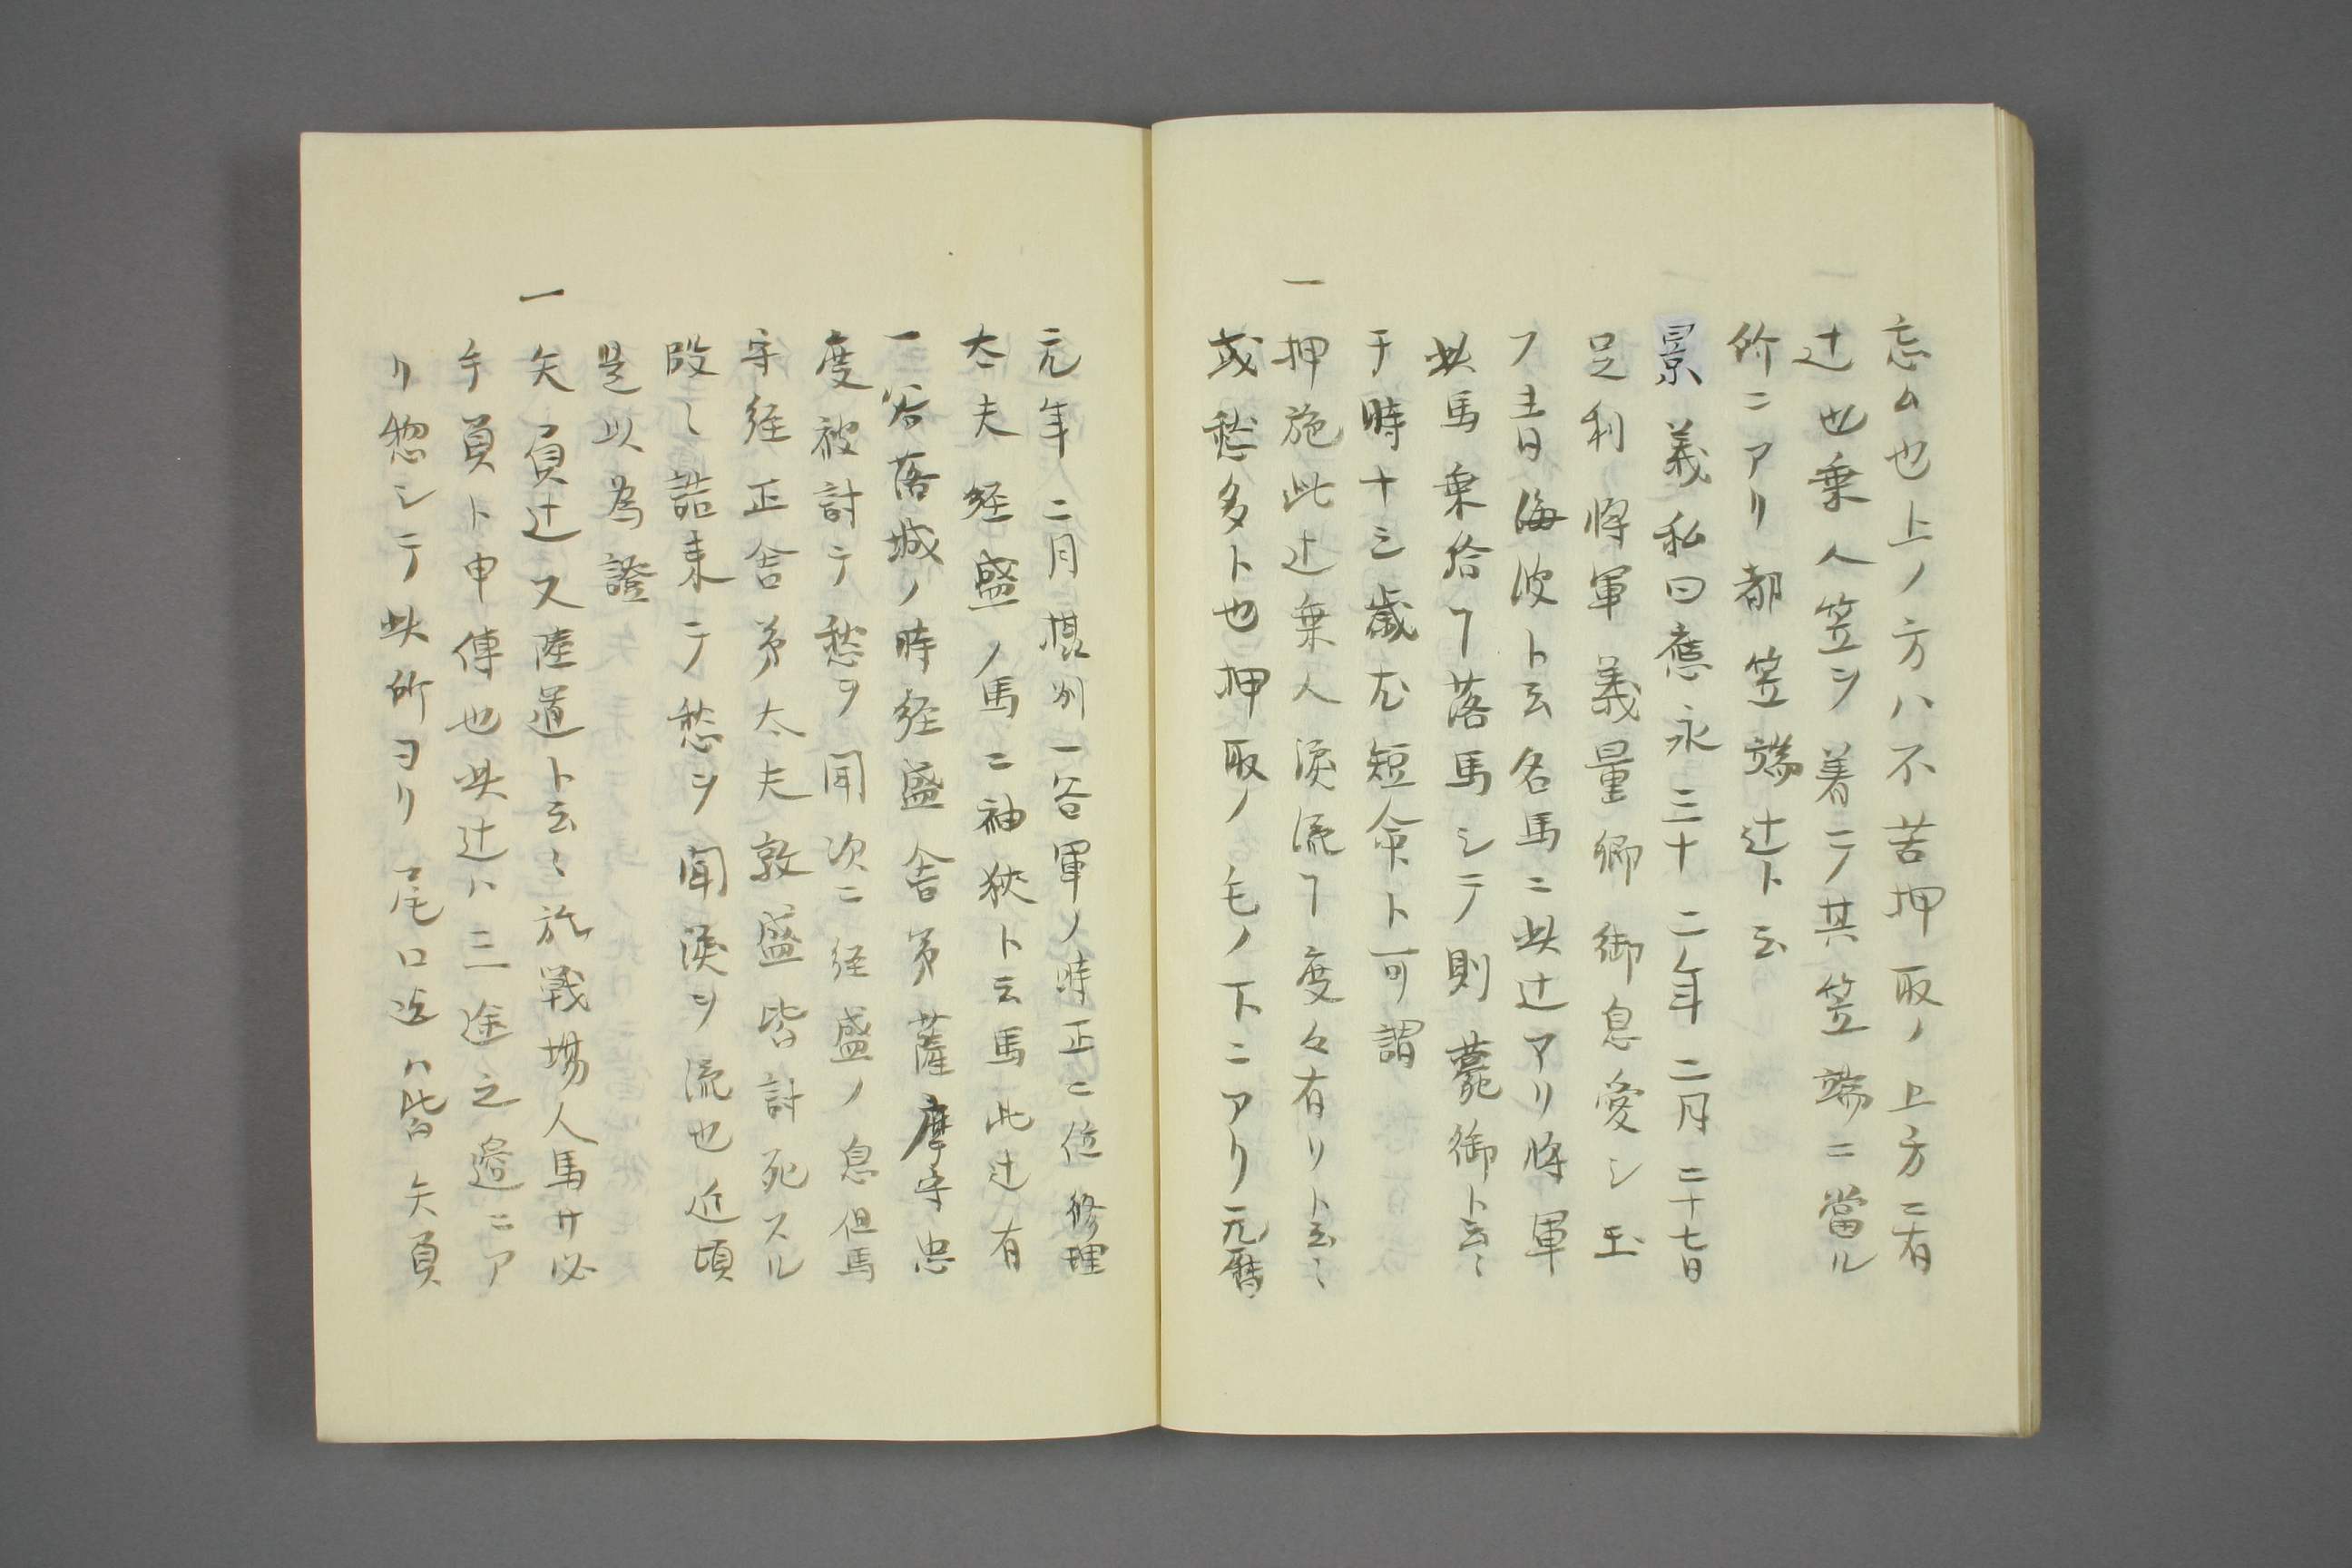 忘ム也上ノ方ハ不苦押取ノ上方ニ有
辻也乗人笠ヲ着テ其笠端ニ當ル
所ニアリ都笠端辻ト云
景義私曰應永三十二年二月二十七日
足利将軍義量卿御息愛シ玉
フ青海波ト云名馬ニ此辻アリ将軍
此馬乗給フ落馬シテ則薨御ト云〻
于時十三歳尤短命ト可謂
一 押施此辻乗人涙流ヿ度々有リト云〻
或愁多ト也押取ノ毛ノ下ニアリ元暦
元年二月摂州一谷軍ノ時正二位修理
太夫経盛ノ馬ニ袖狭ト云馬此辻有
一谷落城ノ時経盛舎弟薩摩守忠
度被討テ愁ヲ聞次ニ経盛ノ息但馬
守経正舎弟太夫敦盛皆討死スル
段〻詰来テ愁ヲ聞涙ヲ流也近頃
是以為證
一 矢負辻又陸道ト云〻於戦場人馬サ必
手負ト申傳也此辻ハ三途之邉ニア
リ惣シテ此所ヨリ尾口迄ハ皆矢負